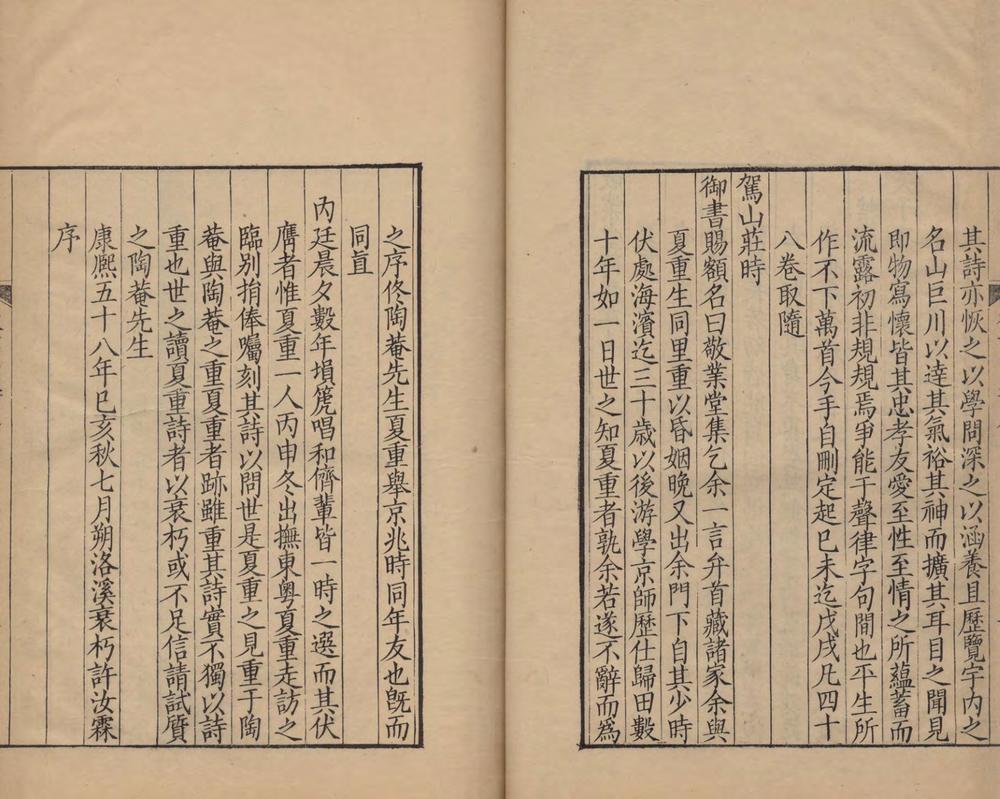 其詩亦恢之以學問深之以涵養且歷覽宇內之
名山巨川以達其氣裕其神而擴其耳目之聞見
即物寫懷皆其忠孝友愛至性至情之所蘊蓄而
流露初非規規焉爭能于聲律字句間也平生所
作不下萬首今手自刪定起巳未迄戊戌凡四十
八卷取隨
駕山莊時
御書賜額名曰敬業堂集乞余一言弁首藏諸家余與
夏重生同里重以昏姻晚又出余門下自其少時
伏處海濱迄三十歲以後游學京師歷仕歸田數
十年如一日世之知夏重者孰余若遂不辭而為
之序佟陶菴先生夏重舉京兆時同年友也旣而
同直
內廷晨夕數年塤箎唱和儕輩皆一時之選而其伏
膺者惟夏重一人丙申冬出撫東粵夏重走訪之
臨別捐俸囑刻其詩以問世是夏重之見重于陶
菴與陶菴之重夏重者跡雖重其詩實不獨以詩
重也世之讀夏重詩者以衰朽或不足信請試質
之陶菴先生
康熙五十八年巳亥秋七月朔洛溪衰朽許汝霖
序